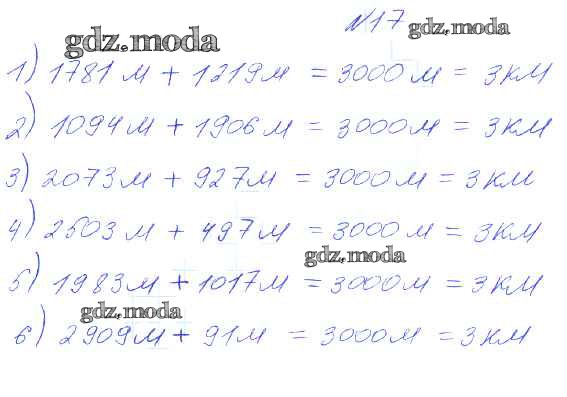 №17 gdz.moda
gdz.moda
1) 1781 м + 1219 м = 3000 м = 3 км
2) 1094 м + 1906 м = 3000 м = 3 км
3) 2073 м + 927 м = 3000 м = 3 км
4) 2503 м + 497 м = 3000 м = 3 км
gdz.moda
5) 1983 м + 1017 м = 3000 м = 3 км
gdz.moda
6) 2909 м + 91 м = 3000 м = 3 км